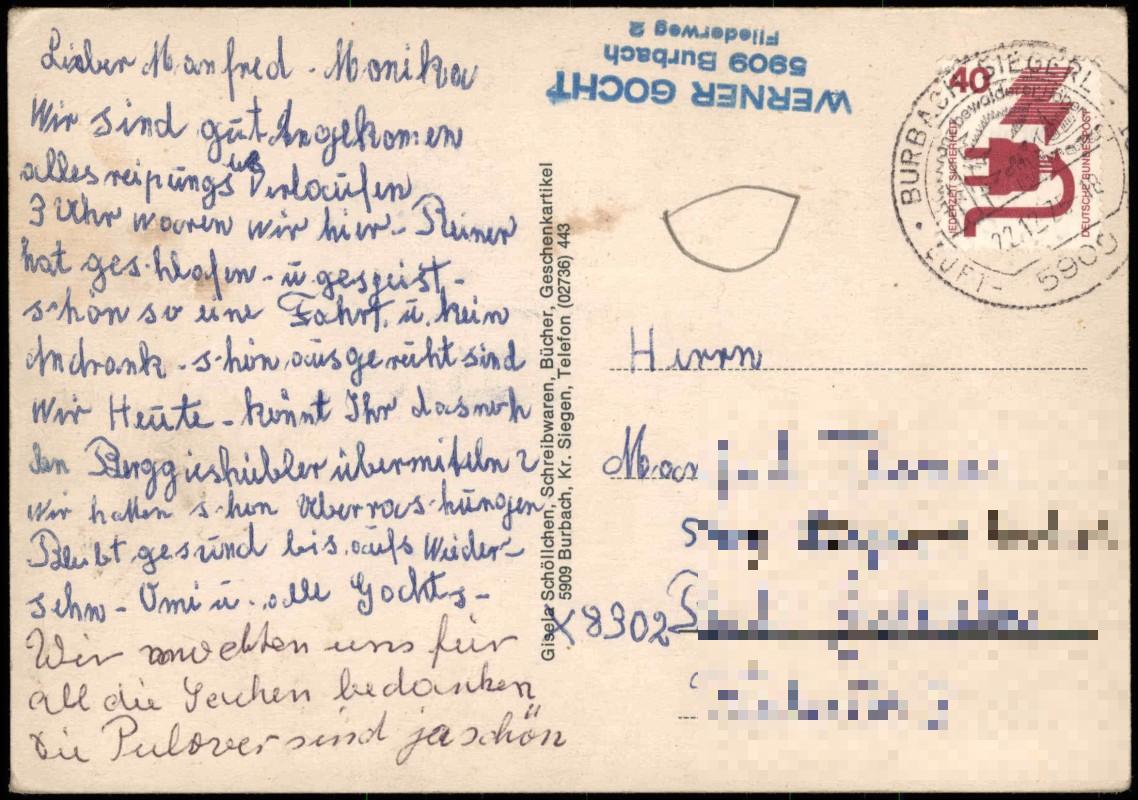 Lieber Manfred - Monika
Wir sind gut Angekomen
alles reipungs us Verlaufen
3 Uhr waren wir hier - Reiner
hat geschlafen - u gespeist -
schön so eine Fahrt. u. kein
Andrank - schön ausgeruht sind
Wir Heute - könnt Ihr das noch
den Berggieshübler übermiteln
Wir hatten schon Überraschungen
Bleibt gesund bis aufs Wieder-
sehn - Omi u. alle Gochts -
Wir möchten uns für
all die Sachen bedanken
Die Pulover sind ja schön
WERNER GOCHT
5909 Burbach
Fliederweg 2
Gisela Schöllchen, Schreibwaren, Bücher, Geschenkartikel
5909 Burbach, Kr. Siegen, Telefon (02736) 443
40
JEDERZEIT SICHERHEIT
DEUTSCHE BUNDESPOST
BURBACH
LUFT-
5909
22.12.
Herrn
X 8302